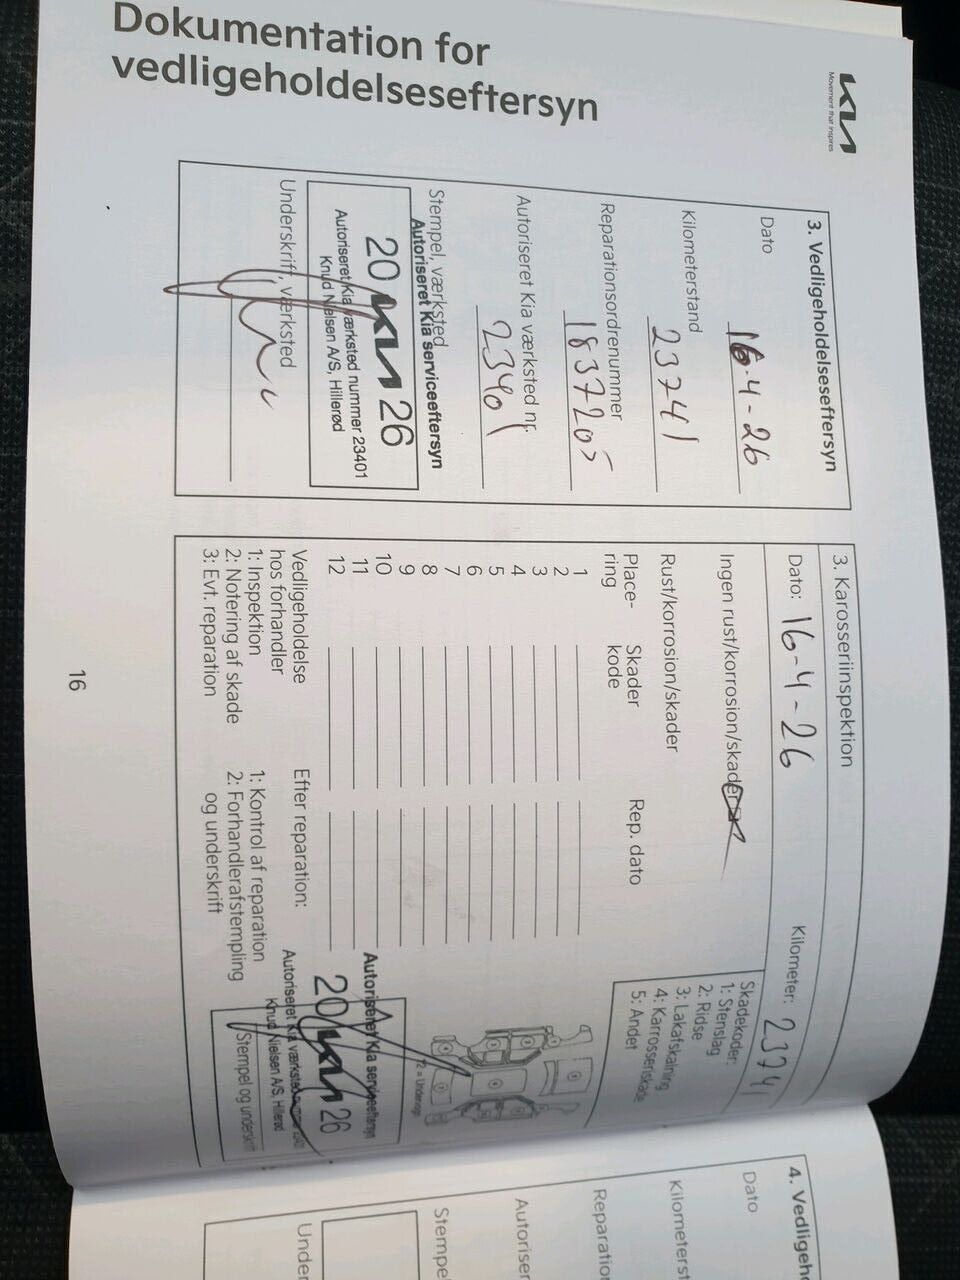 KIA
Movement that inspires
Dokumentation for
vedligeholdelseseftersyn
3. Vedligeholdelseseftersyn
Dato 16-4-26
Kilometerstand 23741
Reparationsordrenummer 1837205
Autoriseret Kia værksted nr. 23401
Stempel, værksted
Autoriseret Kia serviceeftersyn
20 KIA 26
Autoriseret Kia værksted nummer 23401
Knud Nielsen A/S, Hillerød
Underskrift, værksted
3. Karosseriinspektion
Dato: 16-4-26 Kilometer: 23741
Ingen rust/korrosion/skader
Rust/korrosion/skader
Skadekoder:
1: Stenslag
2: Ridse
3: Lakafskalning
4: Karrosseriskade
5: Andet
Place-
ring
Skader
kode
Rep. dato
1
2
3
4
5
6
7
8
9
10
11
12
12 = Undervogn
Vedligeholdelse
hos forhandler
1: Inspektion
2: Notering af skade
3: Evt. reparation
Efter reparation:
1: Kontrol af reparation
2: Forhandlerafstempling
og underskrift
Autoriseret Kia serviceeftersyn
20 KIA 26
Autoriseret Kia værksted nummer 23401
Knud Nielsen A/S, Hillerød
Stempel og underskrift
16
4. Vedligeh
Dato
Kilometerst
Reparation
Autoriser
Stempel
Under